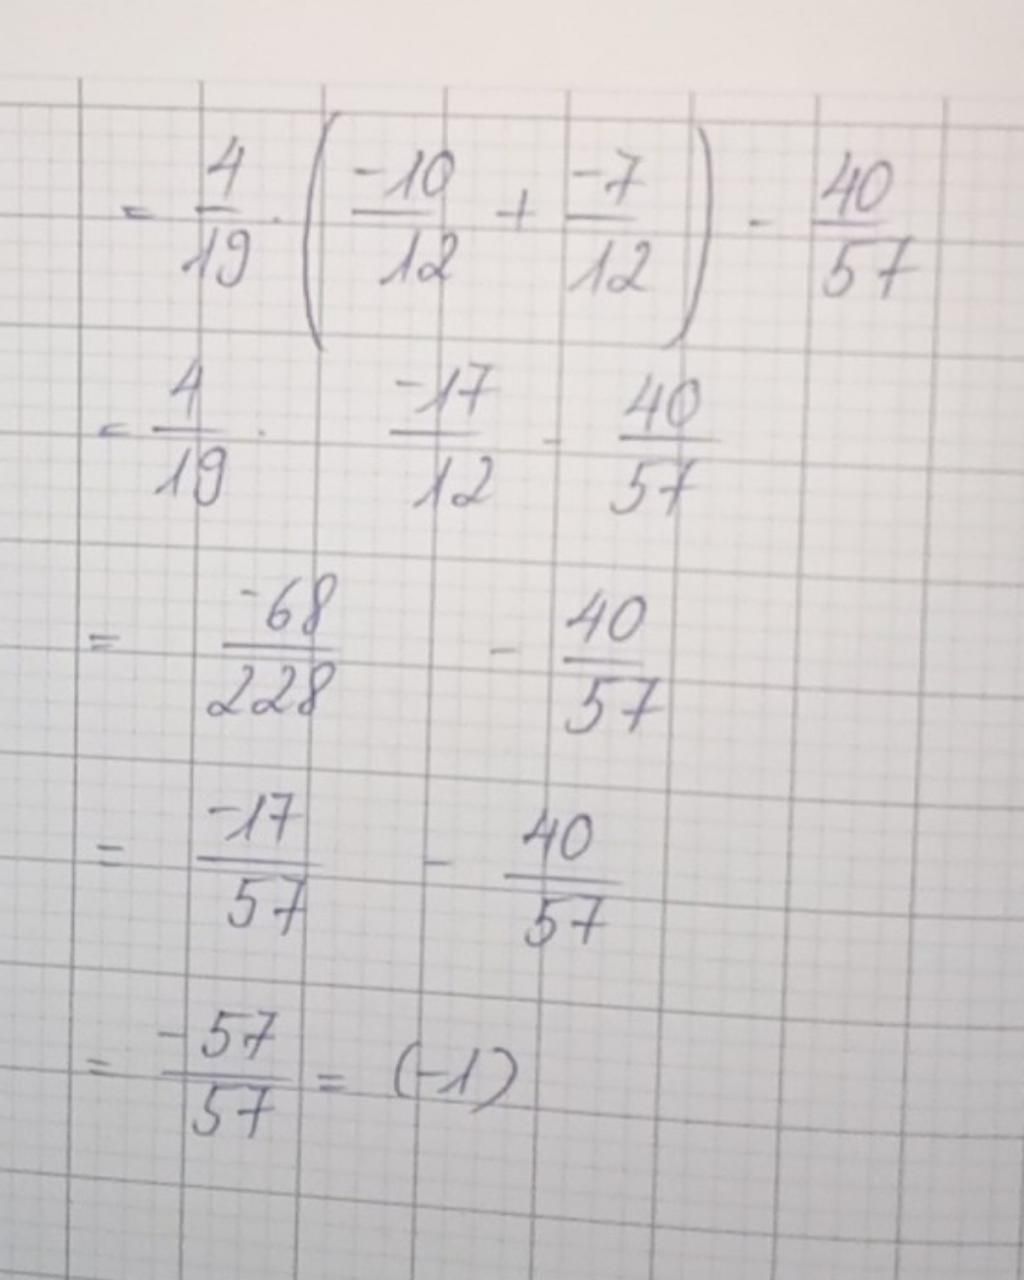 = 4/19 · (-10/12 + -7/12) - 40/57
= 4/19 · -17/12 - 40/57
= -68/228 - 40/57
= -17/57 - 40/57
= -57/57 = (-1)